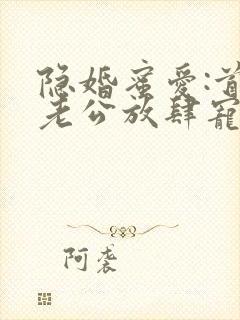 隐婚蜜爱:首
老公放肆寵
阿袭